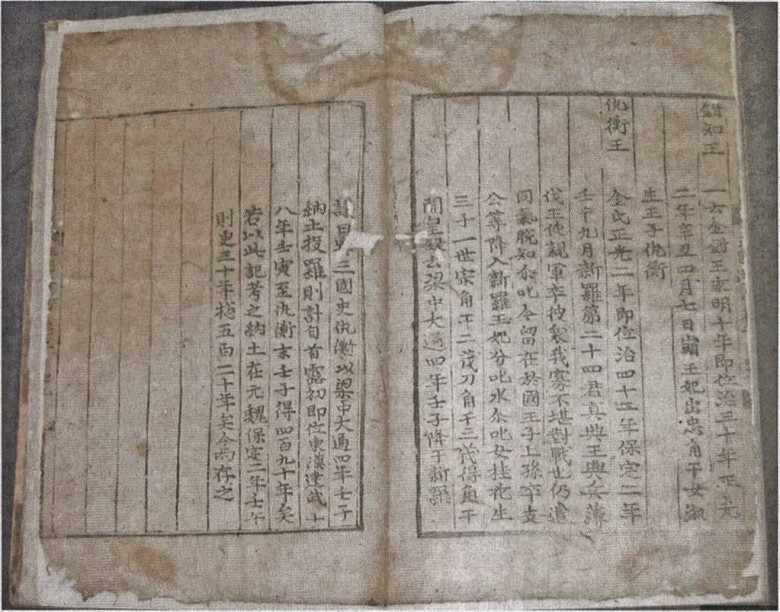 鉗知王 一云金鉗王永明十年即位治三十年正光
二年辛丑四月七日崩王妃出忠角干女淑
生王子仇衡
仇衡王 金氏正光二年即位治四十二年保定二年
壬午九月新羅第二十四君真興王興兵薄
伐王使親軍卒彼衆我寡不堪對戰也仍遣
同氣脫知尒叱今留在於國王子上孫卒支
公等降入新羅王妃分叱水尒叱女桂花生
三子一世宗角干二茂刀角干三茂得角干
開皇錄云梁中大通四年壬子降于新羅
議曰案三國史仇衡以梁中大通四年壬子
納土投羅則計自首露初即位東漢建武十
八年壬寅至仇衡末壬子得四百九十年矣
若以此記考之納土在元魏保定二年壬午
則更三十年摠五百二十年矣今兩存之